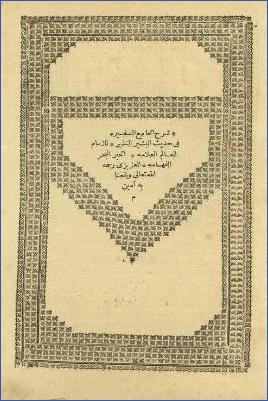 شرح الجامع الصغير
في حديث البشير النذير للامام
العالم العلامة الحبر البحر
الفهامة العزيزي رحمه
الله تعالى ونفعنا
به آمين
م